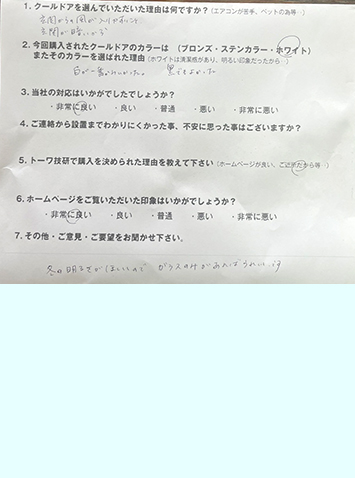 1. クールドアを選んでいただいた理由は何ですか？(エアコンが苦手、ペットの為等…)
玄関から風が入りやすい
玄関が暗いから
2. 今回購入されたクールドアのカラーは （ブロンズ・ステンカラー・ホワイト）
またそのカラーを選ばれた理由（ホワイトは清潔感があり、明るい印象だったから…）
白が一番よかった。 黒でもよかった
3. 当社の対応はいかがでしたでしょうか？
・非常に良い ・良い ・普通 ・悪い ・非常に悪い
4. ご連絡から設置までわかりにくかった事、不安に思った事はございますか？
5. トーワ技研で購入を決められた理由を教えて下さい（ホームページが良い、ご近所だから等…）
6. ホームページをご覧いただいた印象はいかがでしょうか？
・非常に良い ・良い ・普通 ・悪い ・非常に悪い
7. その他・ご意見・ご要望をお聞かせ下さい。
冬の明るさがほしいので ガラスのみがあればうれしいです